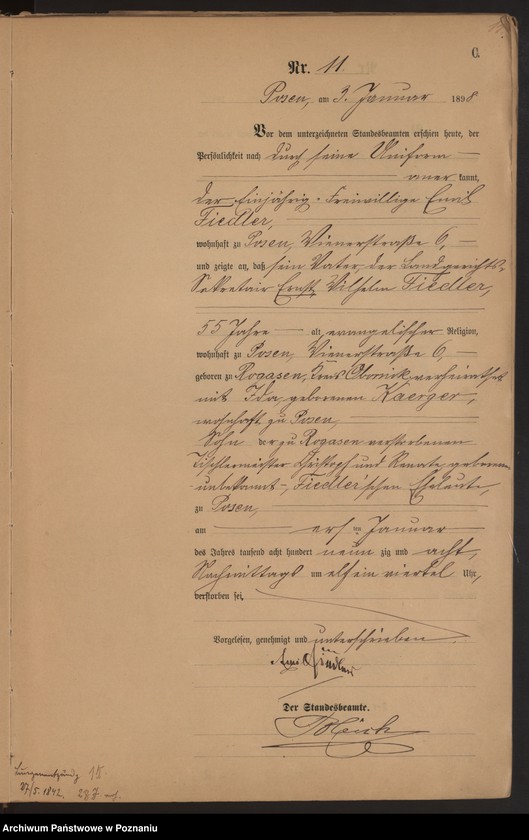 C.
Nr. 11.
Posen, am 3. Januar 1898
Vor dem unterzeichneten Standesbeamten erschien heute, der
Persönlichkeit nach durch seine Uniform
aner kannt,
der Einjährig-Freiwillige Emil
Fiedler,
wohnhaft zu Posen, Wienerstraße 6,
und zeigte an, daß sein Vater, der Landgerichts-
Sekretair Ernst Wilhelm Fiedler,
55 Jahre alt, evangelischer Religion,
wohnhaft zu Posen, Wienerstraße 6,
geboren zu Rogasen, Kreis Obornik, verheirathet
mit Ida geborenen Kaerger,
wohnhaft zu Posen,
Sohn der zu Rogasen verstorbenen
Tischlermeister Christoph und Renate, geborenen
unbekannt, Fiedler'schen Eheleute,
zu Posen,
am ersten Januar
des Jahres tausend acht hundert neun zig und acht,
Nachmittags um elf ein viertel Uhr,
verstorben sei.
Vorgelesen, genehmigt und unterschrieben
Emil Fiedler
Der Standesbeamte.
18.
27/5. 1842.
Archiwum Państwowe w Poznaniu